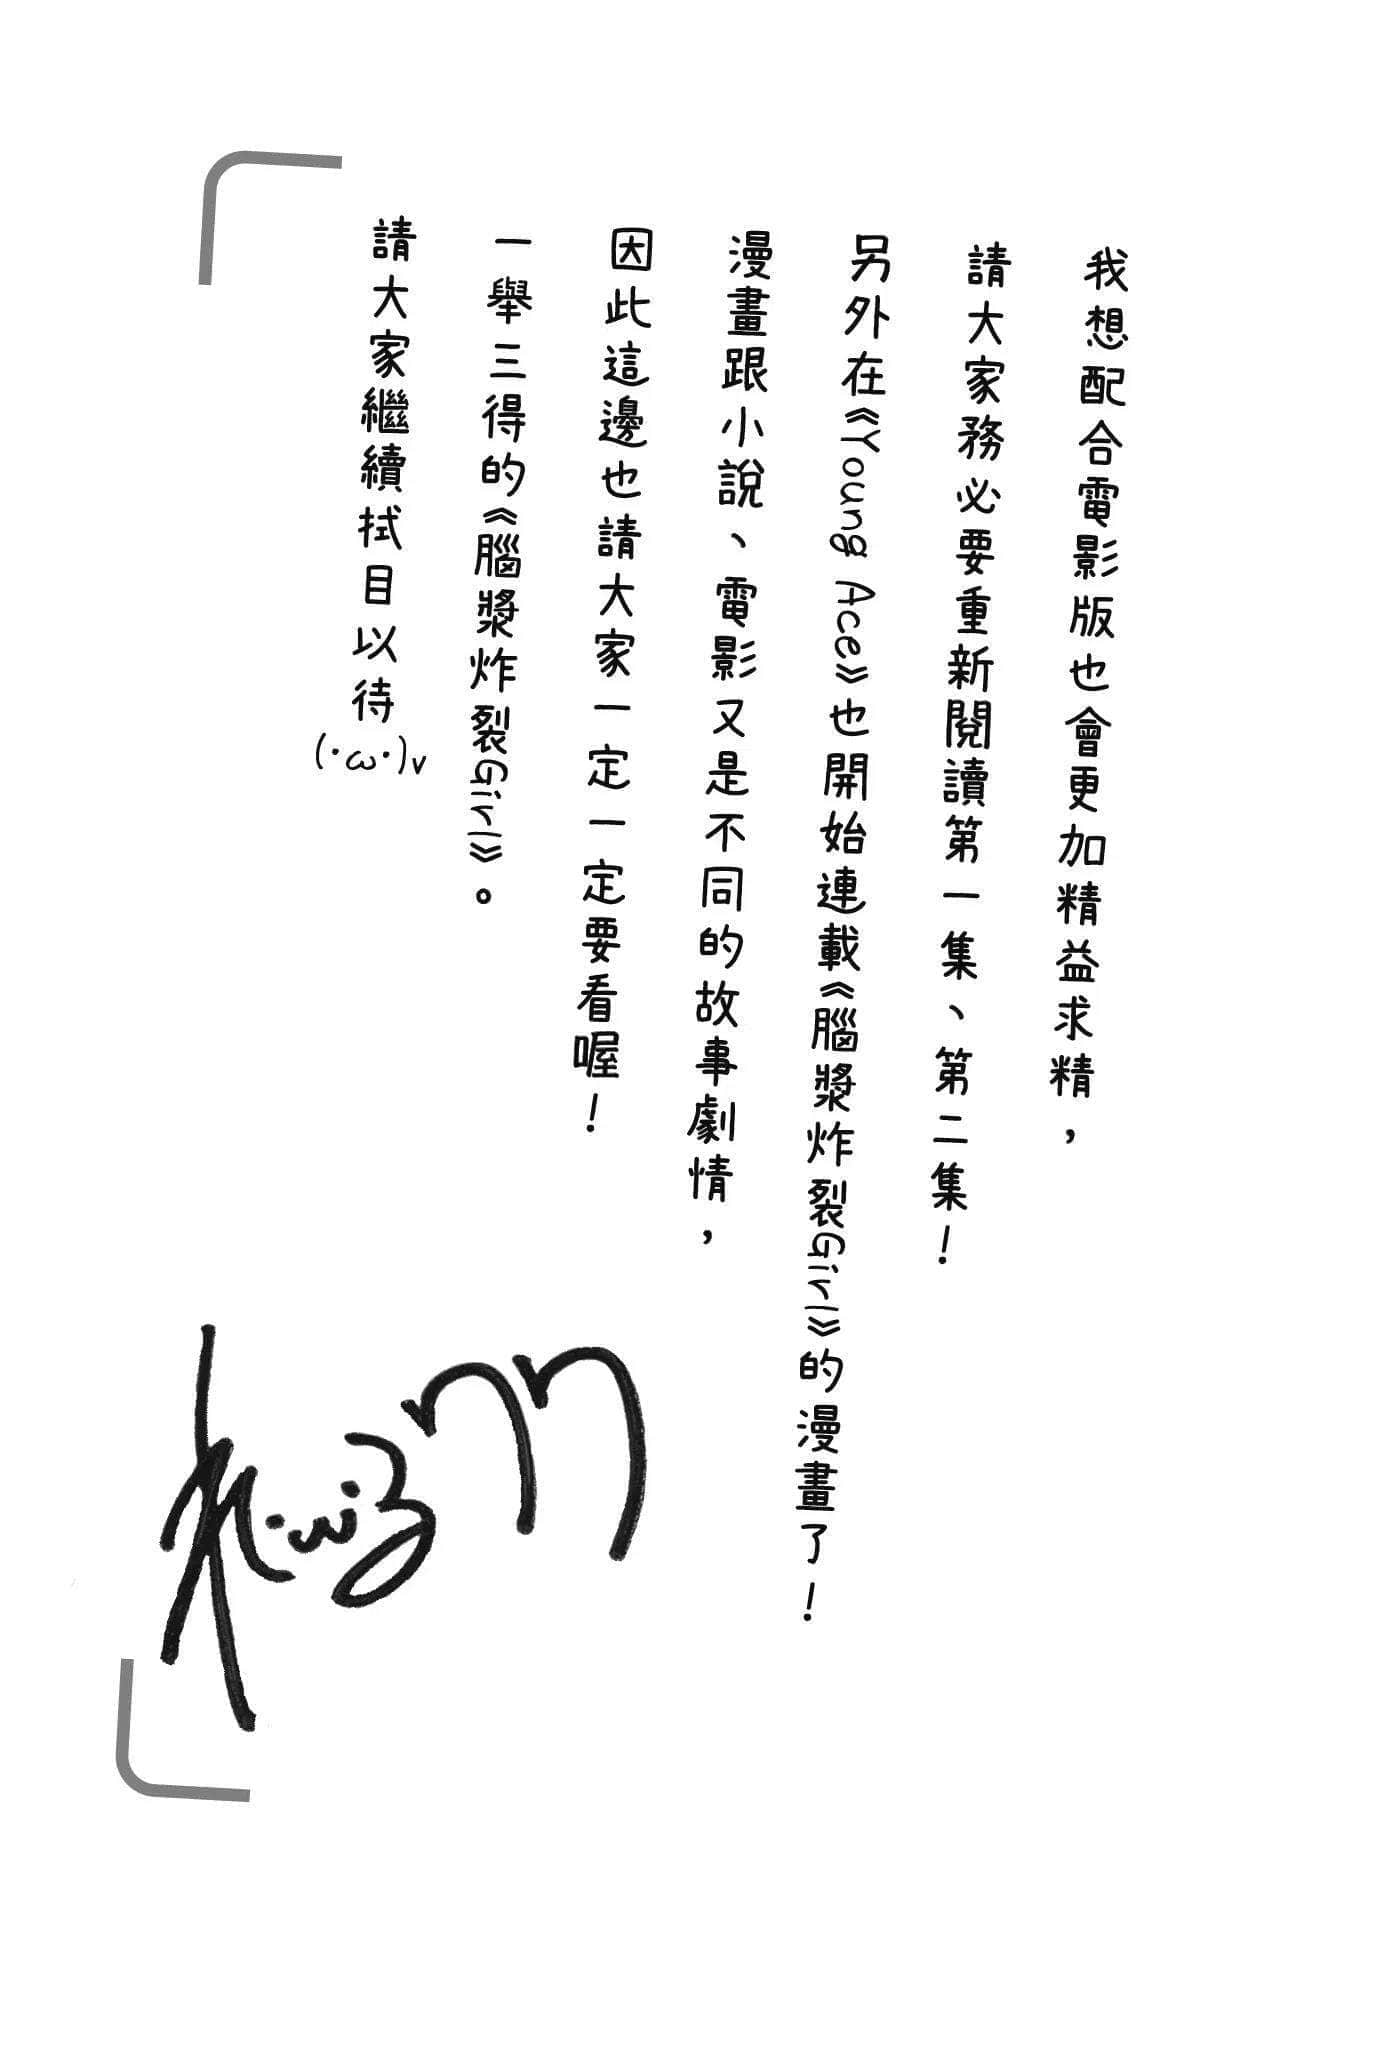 我想配合電影版也會更加精益求精，
請大家務必要重新閱讀第一集、第二集！
另外在《Young Ace》也開始連載《腦漿炸裂Girl》的漫畫了！
漫畫跟小說、電影又是不同的故事劇情，
因此這邊也請大家一定一定要看喔！
一舉三得的《腦漿炸裂Girl》。
請大家繼續拭目以待(・ω・)v